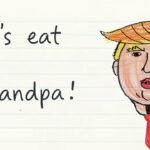 's eat
andpa!